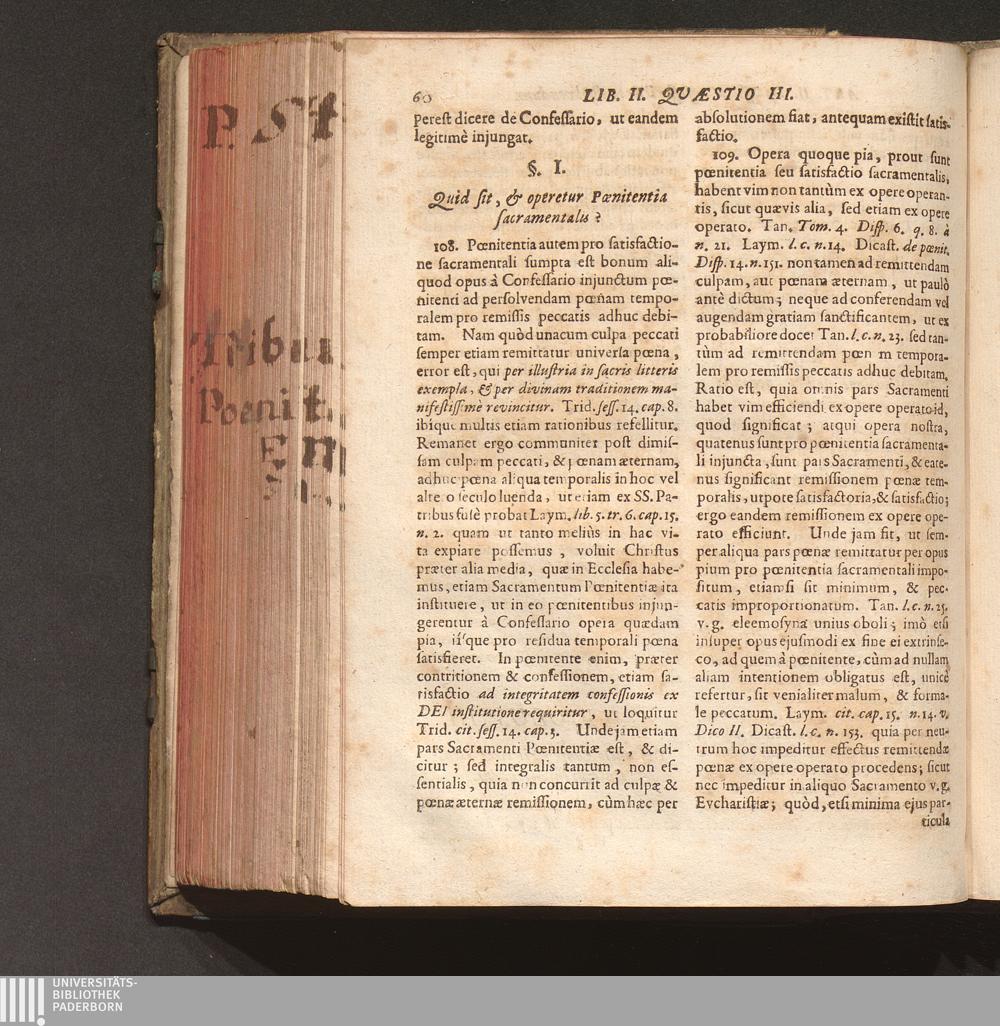 P. St
Tribu
Poenit.
Em
60
LIB. II. QVÆSTIO III.
perest dicere de Confessario, ut eandem
legitimè injungat.
§. I.
Quid sit, & operetur Pœnitentia
sacramentalis?
108. Pœnitentia autem pro satisfactio-
ne sacramentali sumpta est bonum ali-
quod opus à Confessario injunctum pœ-
nitenti ad persolvendam pœnam tempo-
ralem pro remissis peccatis adhuc debi-
tam. Nam quòd unacum culpa peccati
semper etiam remittatur universa pœna,
error est, qui per illustria in sacris litteris
exempla, & per divinam traditionem ma-
nifestissimè revincitur. Trid. sess. 14. cap. 8.
ibíque multis etiam rationibus refellitur.
Remanet ergo communiter post dimis-
sam culpam peccati, & pœnam æternam,
adhuc pœna aliqua temporalis in hoc vel
altero seculo luenda, ut etiam ex SS. Pa-
tribus fusè probat Laym. lib. 5. tr. 6. cap. 15.
n. 2. quam ut tanto meliùs in hac vi-
ta expiare possemus, voluit Christus
præter alia media, quæ in Ecclesia habe-
mus, etiam Sacramentum Pœnitentiæ ita
instituere, ut in eo pœnitentibus injun-
gerentur à Confessario opera quædam
pia, iísque pro residua temporali pœna
satisfieret. In pœnitente enim, præter
contritionem & confessionem, etiam sa-
tisfactio ad integritatem confessionis ex
DEI institutione requiritur, ut loquitur
Trid. cit. sess. 14. cap. 3. Unde jam etiam
pars Sacramenti Pœnitentiæ est, & di-
citur; sed integralis tantum, non es-
sentialis, quia non concurrit ad culpæ &
pœnæ æternæ remissionem, cùm hæc per
absolutionem fiat, antequam existit satis-
factio.
109. Opera quoque pia, prout sunt
pœnitentia seu satisfactio sacramentalis,
habent vim non tantùm ex opere operan-
tis, sicut quævis alia, sed etiam ex opere
operato. Tan. Tom. 4. Disp. 6. q. 8. à
n. 21. Laym. l. c. n. 14. Dicast. de pœnit.
Disp. 14. n. 151. non tamen ad remittendam
culpam, aut pœnam æternam, ut paulò
antè dictum; neque ad conferendam vel
augendam gratiam sanctificantem, ut ex
probabiliore docet Tan. l. c. n. 23. sed tan-
tùm ad remittendam pœn m tempora-
lem pro remissis peccatis adhuc debitam.
Ratio est, quia omnis pars Sacramenti
habet vim efficiendi ex opere operato id,
quod significat; atqui opera nostra,
quatenus sunt pro pœnitentia sacramenta-
li injuncta, sunt pars Sacramenti, & eate-
nus significant remissionem pœnæ tem-
poralis, utpote satisfactoria, & satisfactio;
ergo eandem remissionem ex opere ope-
rato efficiunt. Unde jam fit, ut sem-
per aliqua pars pœnæ remittatur per opus
pium pro pœnitentia sacramentali impo-
situm, etiamsi sit minimum, & pec-
catis improportionatum. Tan. l. c. n. 25.
v. g. eleemosyna unius oboli; imò etsi
insuper opus ejusmodi ex fine ei extrinse-
co, ad quem à pœnitente, cùm ad nullam
aliam intentionem obligatus est, unicè
refertur, sit venialiter malum, & forma-
le peccatum. Laym. cit. cap. 15. n. 14. v.
Dico II. Dicast. l. c. n. 153. quia per neu-
trum hoc impeditur effectus remittendæ
pœnæ ex opere operato procedens; sicut
nec impeditur in aliquo Sacramento v. g.
Evcharistiæ; quòd, etsi minima ejus par-
ticula
UNIVERSITÄTS-
BIBLIOTHEK
PADERBORN